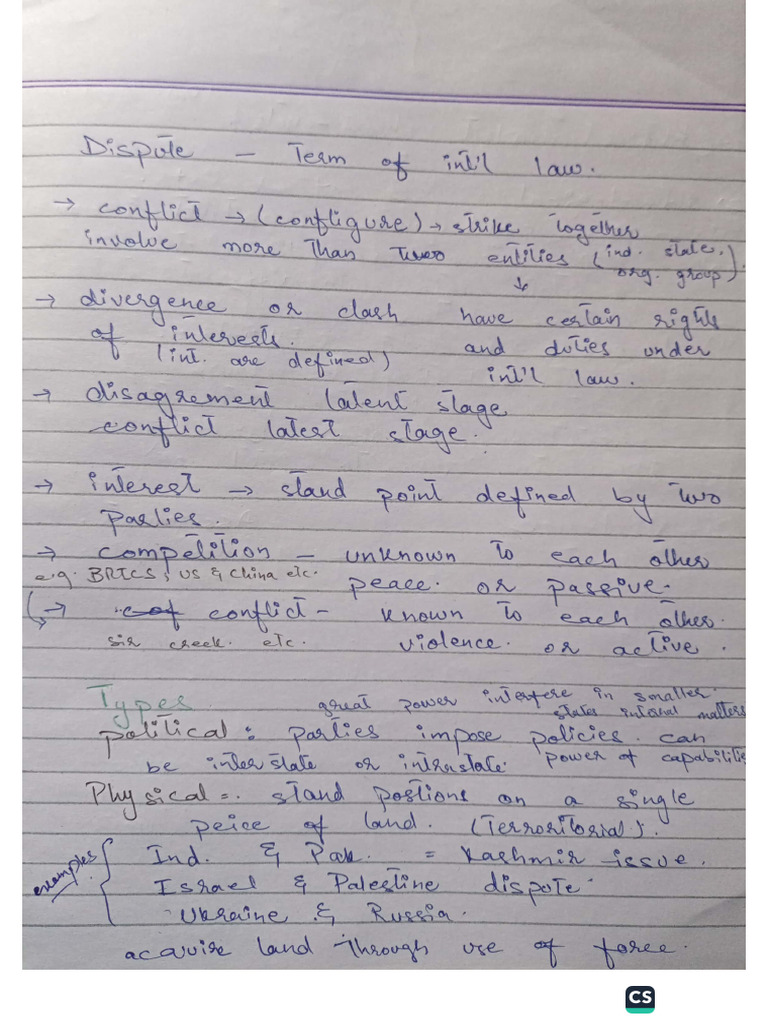 Dispute - Term of int'l law.
→ conflict → (configure) → strike together
involve more than two entities (ind. state,
org. group).
→ divergence or clash have certain rights
of interests. and duties under
(int. are defined) int'l law.
→ disagrement latent stage
conflict latest stage.
→ interest → stand point defined by two
parties.
→ competition - unknown to each other
e.g. BRICS, US & China etc. peace. or passive.
→ conflict - known to each other.
sir creek. etc. violence. or active.
Types great power interfere in smaller
states internal matters
political: parties impose policies. can
be interstate or intrastate. power of capabilities
Physical =. stand postions on a single
peice of land. (Terroritorial).
examples Ind. & Pak. = Kashmir issue.
Israel & Palestine dispute.
Ukraine & Russia.
acquire land through use of force.
CS